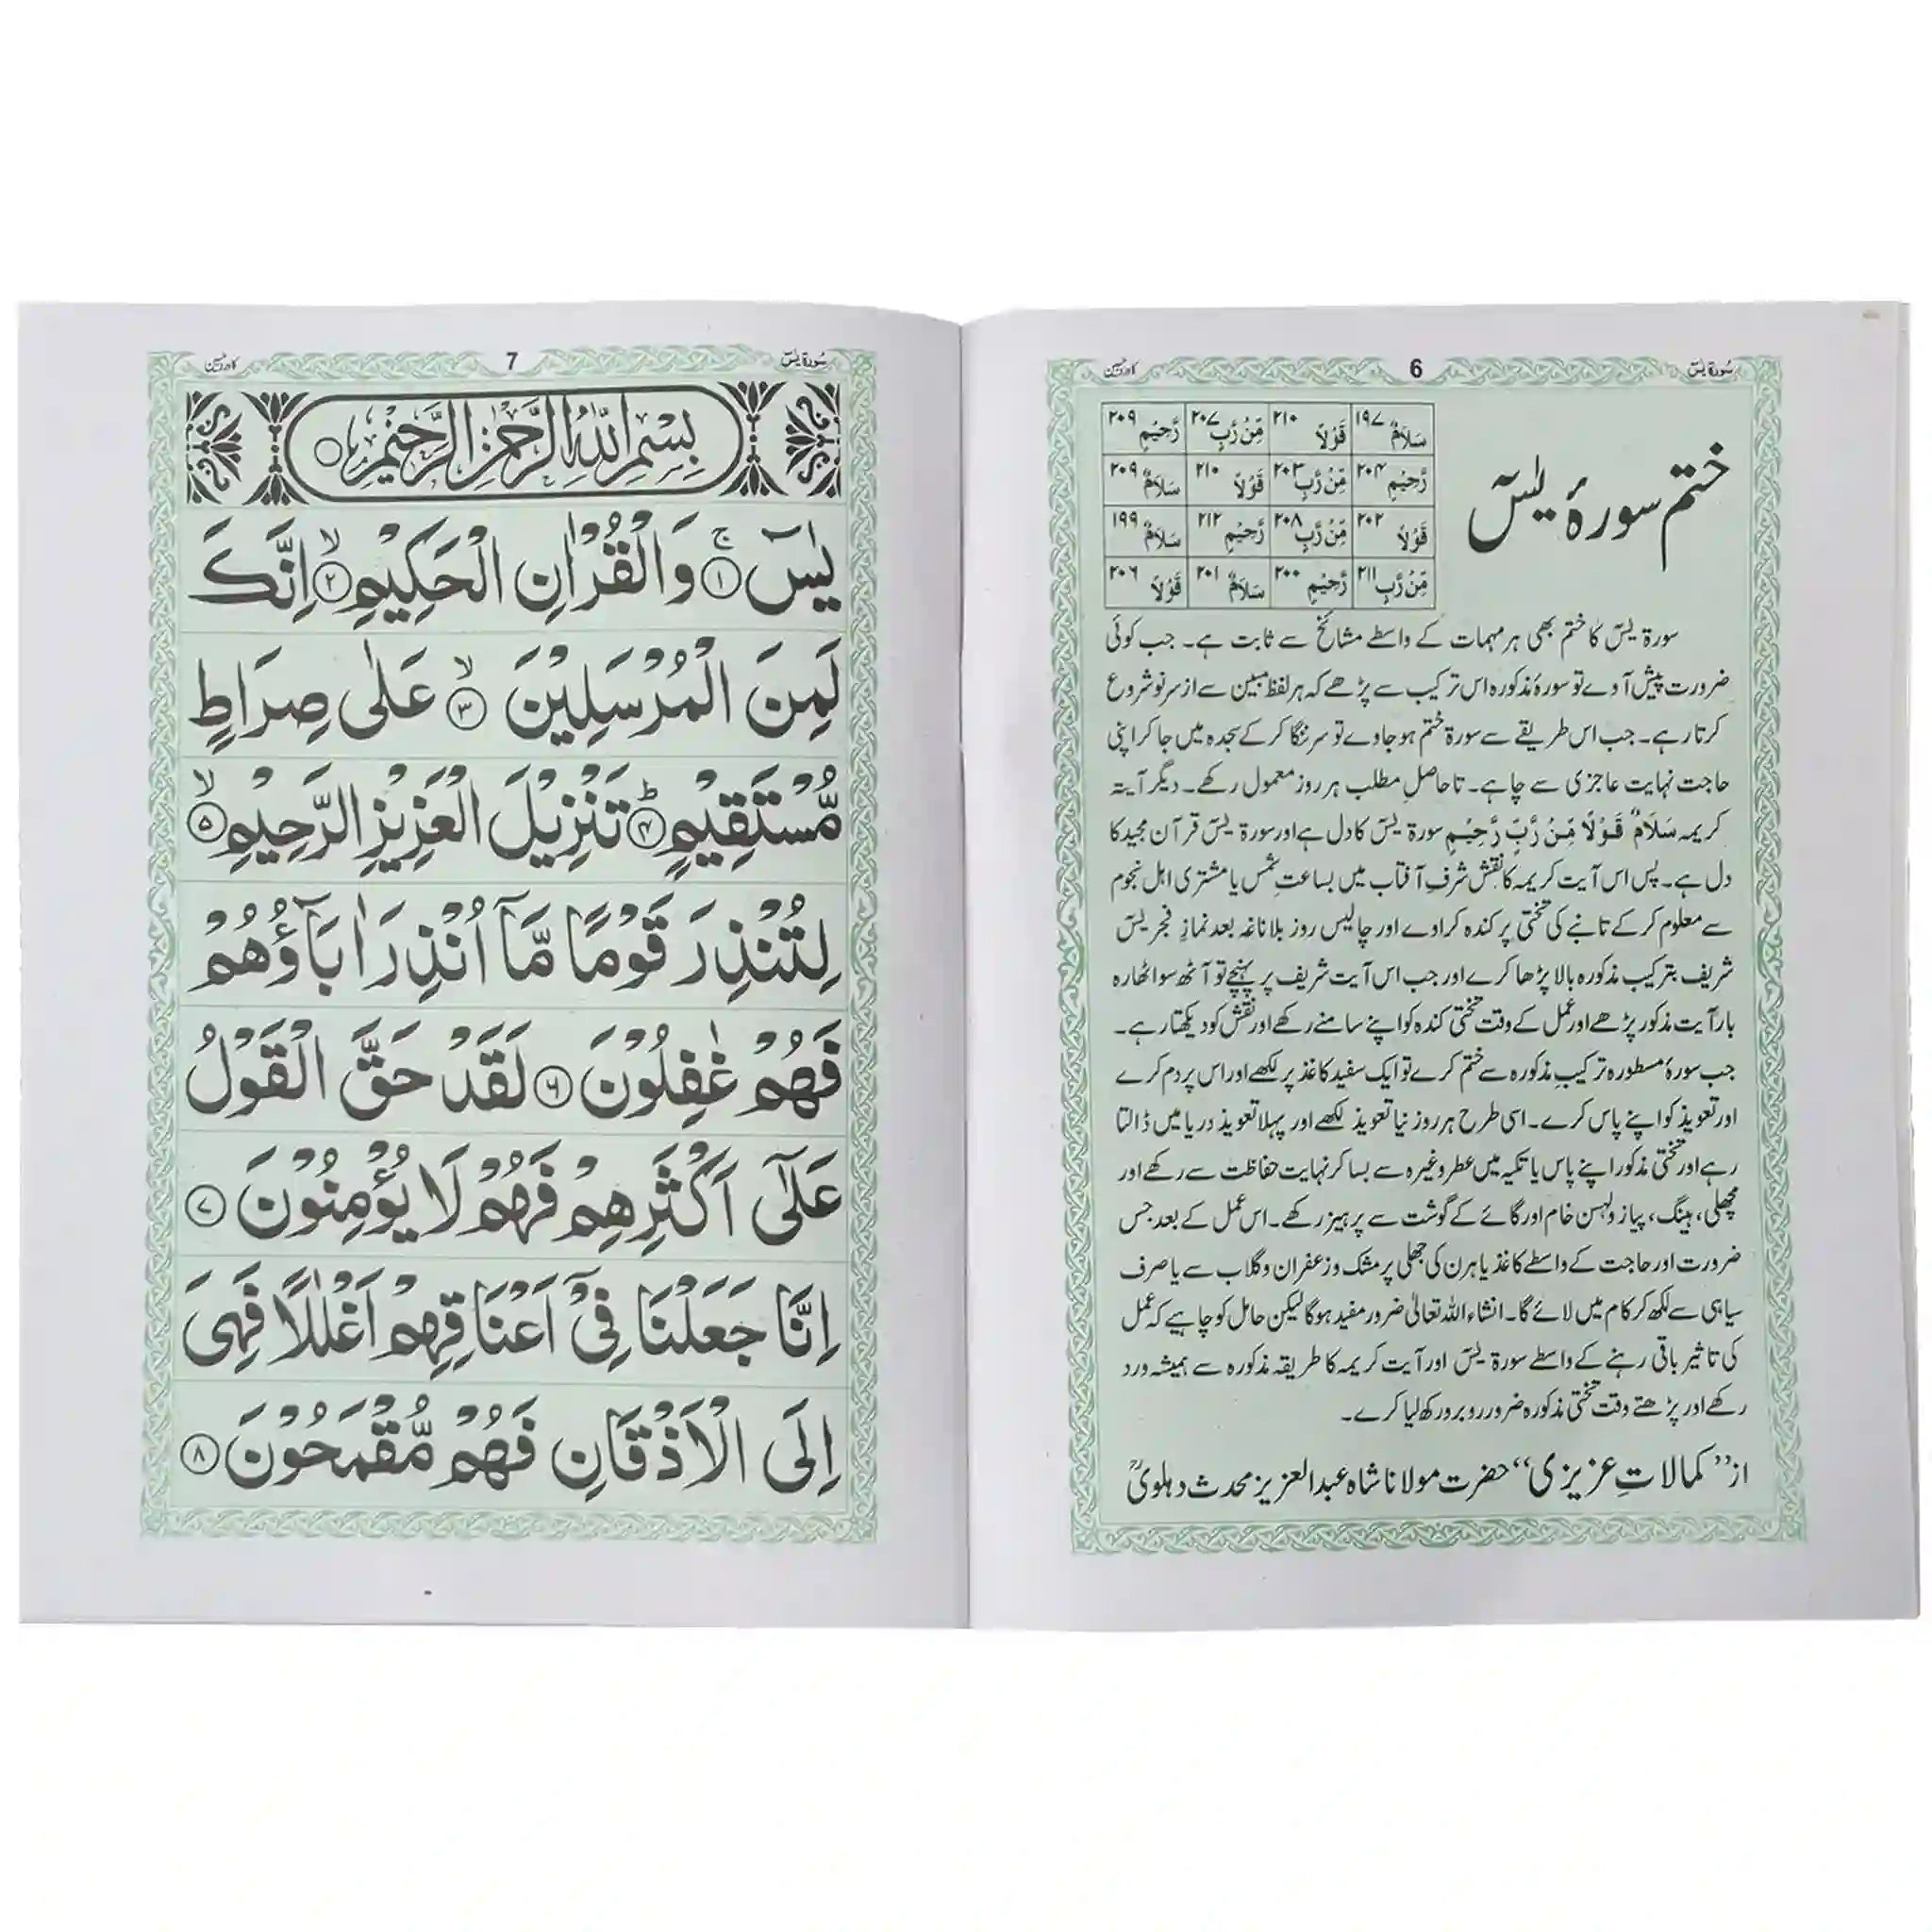 سُورۃ یٰسٓ 6
ختم سورۂ یٰسٓ
۱۹۷ سَلَامٌ ۲۱۰ قَوْلًا ۲۰۷ مِّنْ رَّبٍّ ۲۰۹ رَّحِیْمٍ
۲۰۴ رَّحِیْمٍ ۲۰۳ مِّنْ رَّبٍّ ۲۱۰ قَوْلًا ۲۰۹ سَلَامٌ
۲۰۲ قَوْلًا ۲۰۸ مِّنْ رَّبٍّ ۲۱۲ رَّحِیْمٍ ۱۹۹ سَلَامٌ
۲۱۱ مِّنْ رَّبٍّ ۲۰۰ رَّحِیْمٍ ۲۰۱ سَلَامٌ ۲۰۶ قَوْلًا
سورۃ یٰسٓ کا ختم بھی ہر مہمات کے واسطے مشائخ سے ثابت ہے۔ جب کوئی
ضرورت پیش آوے تو سورۂ مذکورہ اس ترکیب سے پڑھے کہ ہر لفظ مبین سے از سر نو شروع
کرتا رہے۔ جب اس طریقے سے سورۃ ختم ہو جاوے تو سر ننگا کر کے سجدہ میں جا کر اپنی
حاجت نہایت عاجزی سے چاہے۔ تا حاصلِ مطلب ہر روز معمول رکھے۔ دیگر آیۃ
کریمہ سَلَامٌ قَوْلًا مِّنْ رَّبٍّ رَّحِیْمٍ سورۃ یٰسٓ کا دل ہے اور سورۃ یٰسٓ قرآن مجید کا
دل ہے۔ پس اس آیت کریمہ کا نقش شرفِ آفتاب میں بساعتِ شمس یا مشتری اہل نجوم
سے معلوم کر کے تانبے کی تختی پر کندہ کراوے اور چالیس روز بلا ناغہ بعد نمازِ فجر یٰسٓ
شریف بترکیب مذکورہ بالا پڑھا کرے اور جب اس آیت شریف پر پہنچے تو آٹھ سو اٹھارہ
بار آیت مذکور پڑھے اور عمل کے وقت تختی کندہ کو اپنے سامنے رکھے اور نقش کو دیکھتا رہے۔
جب سورۂ مسطورہ ترکیبِ مذکورہ سے ختم کرے تو ایک سفید کاغذ پر لکھے اور اس پر دم کرے
اور تعویذ کو اپنے پاس کرے۔ اسی طرح ہر روز نیا تعویذ لکھے اور پہلا تعویذ دریا میں ڈالتا
رہے اور تختی مذکور اپنے پاس یا تکیہ میں عطر وغیرہ سے بسا کر نہایت حفاظت سے رکھے اور
مچھلی، ہینگ، پیاز و لہسن خام اور گائے کے گوشت سے پرہیز رکھے۔ اس عمل کے بعد جس
ضرورت اور حاجت کے واسطے کاغذ یا ہرن کی جھلی پر مشک و زعفران و گلاب سے یا صرف
سیاہی سے لکھ کر کام میں لائے گا۔ انشاء اللہ تعالیٰ ضرور مفید ہوگا لیکن حامل کو چاہیے کہ عمل
کی تاثیر باقی رہنے کے واسطے سورۃ یٰسٓ اور آیت کریمہ کا طریقہ مذکورہ سے ہمیشہ ورد
رکھے اور پڑھتے وقت تختی مذکورہ ضرور روبرو رکھ لیا کرے۔
از ”کمالاتِ عزیزی“ حضرت مولانا شاہ عبدالعزیز محدث دہلویؒ
سُورۃ یٰسٓ 7
بِسْمِ اللّٰهِ الرَّحْمٰنِ الرَّحِیْمِ
یٰسٓ ۚ﴿۱﴾ وَالْقُرْاٰنِ الْحَكِیْمِ ۙ﴿۲﴾ اِنَّكَ
لَمِنَ الْمُرْسَلِیْنَ ۙ﴿۳﴾ عَلٰی صِرَاطٍ
مُّسْتَقِیْمٍ ؕ﴿۴﴾ تَنْزِیْلَ الْعَزِیْزِ الرَّحِیْمِ ۙ﴿۵﴾
لِتُنْذِرَ قَوْمًا مَّآ اُنْذِرَ اٰبَآؤُهُمْ
فَهُمْ غٰفِلُوْنَ ﴿۶﴾ لَقَدْ حَقَّ الْقَوْلُ
عَلٰٓی اَكْثَرِهِمْ فَهُمْ لَا یُؤْمِنُوْنَ ﴿۷﴾
اِنَّا جَعَلْنَا فِیْۤ اَعْنَاقِهِمْ اَغْلٰلًا فَهِیَ
اِلَی الْاَذْقَانِ فَهُمْ مُّقْمَحُوْنَ ﴿۸﴾